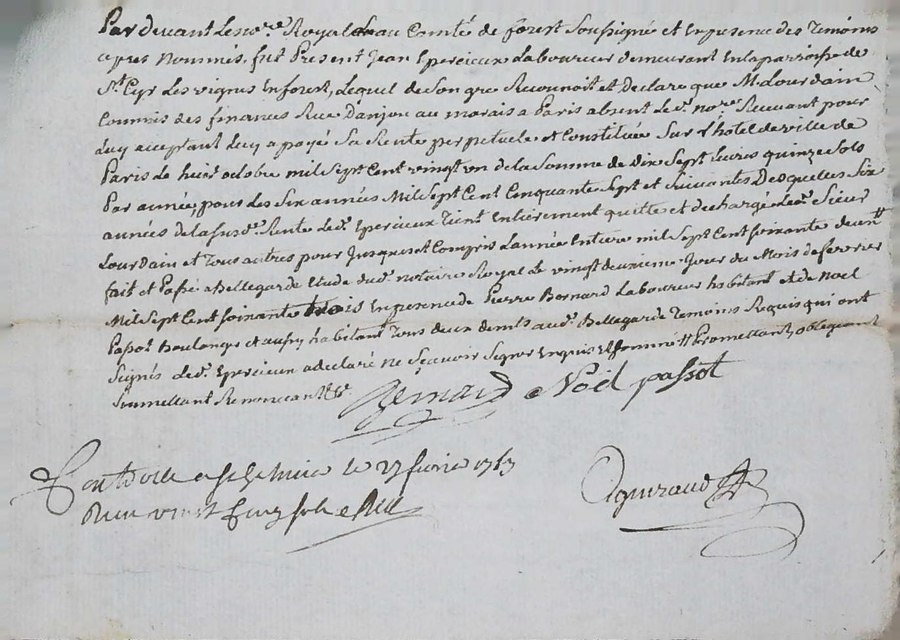 Par devant Le no.re Royal au Comté de forest Soussigné et En presence des Temoins
apres Nommés, fut Present Jean Epercieux Laboureur demeurant En la parroisse de
St. Cyr Les vignes En forest, Lequel de Son gre Reconnoit et Declare que M. Lourdain
Commis des finances Rue D'anjou au marais a Paris absent Le d.t no.re Recevant pour
Luy aceptant Luy a payé Sa Rente perpetuele et Constituée Sur L'hotel de ville de
Paris Le huit octobre mil Sept Cent vingt un de la Somme de Dix Sept Livres quinze Sols
Par année, pour Les Six années Mil Sept Cent Cinquante Sept et Suivantes Desquelles Six
années de la Susd.e Rente Led.t Epercieux Tient Entièrement quitte et dechargé Led.t Sieur
Lourdain et Tous autres pour Jusques et Compris L'année Entiere mil Sept Cent Soixante deux
fait et Passé a Bellegarde Etude dud.t notaire Royal Le vingt deuxieme Jour du Mois de fevrier
Mil Sept Cent Soixante trois En presence de Pierre Bernard Laboureur habitant et de Noël
Passot Boulanger et aussy habitant Tous deux aud.t Bellegarde Temoins Requis qui ont
Signés Led.t Epercieux a declaré ne Sçavoir Signer Enquis et Sommé Promettant, obligeant
Soumettant Renonceant &c.
Bernard Noël passot
Controllé a le 27 fevrier 1763
Reçu vingt Cinq sols